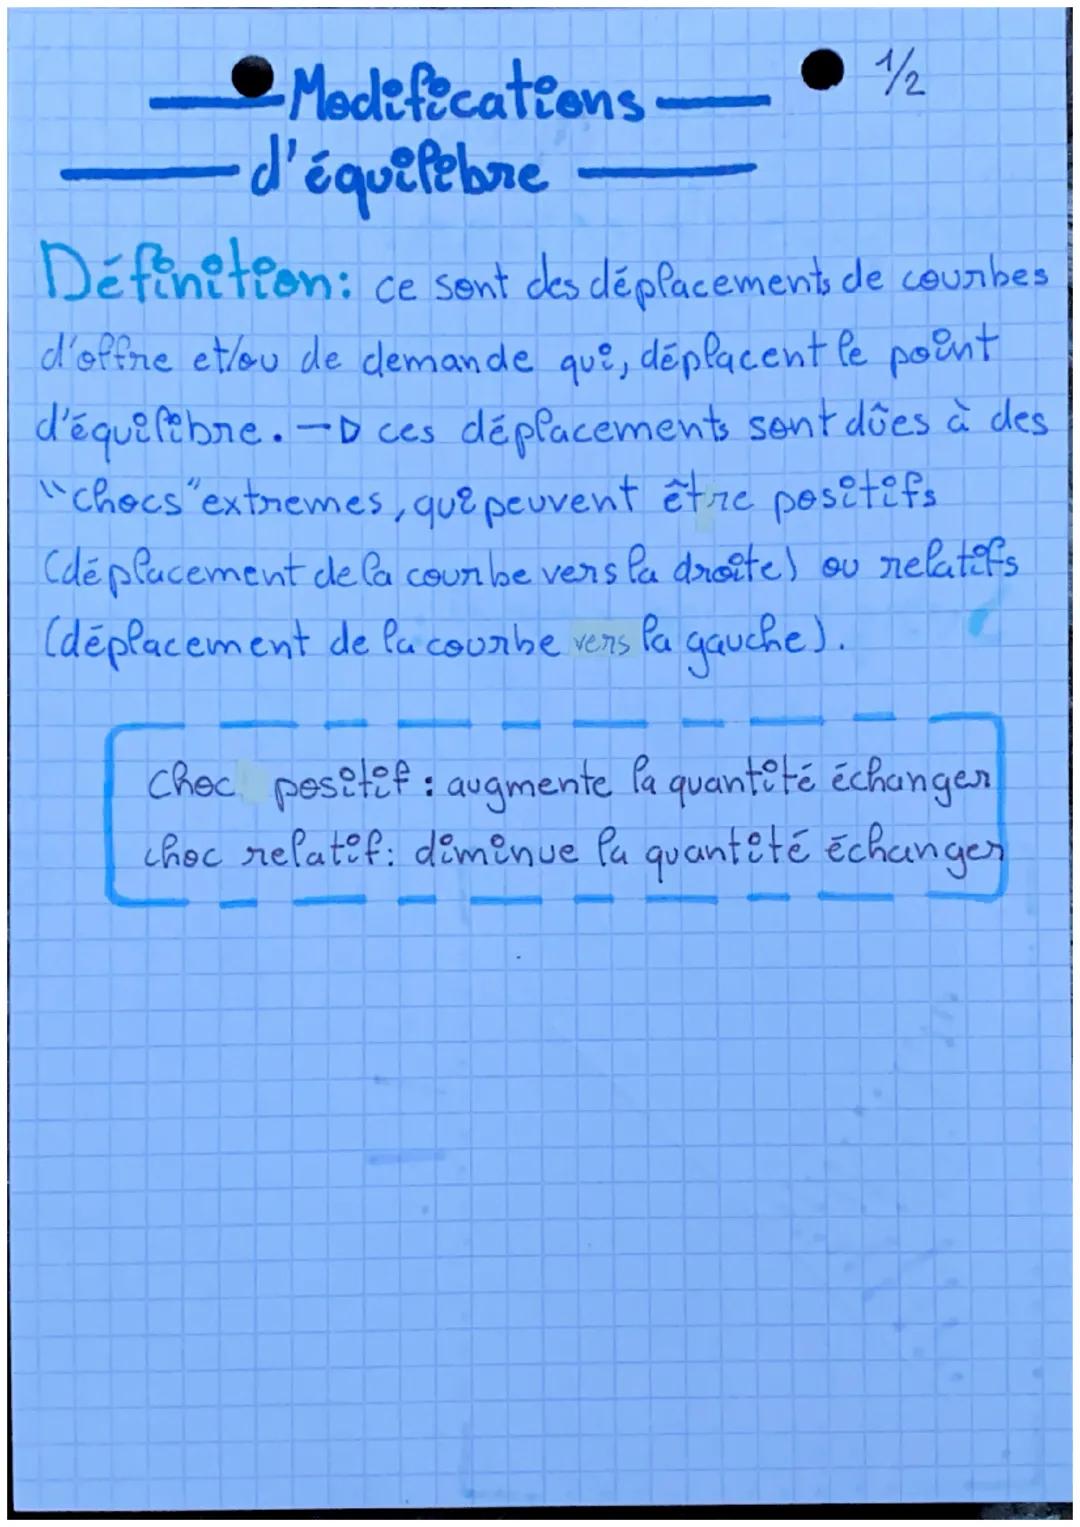 1/2
Modifications
d'équilibre
Définition: ce sont des déplacements de courbes
d'offre et/ou de demande qui, déplacent le point
d'équilibre. → ces déplacements sont dûes à des
"chocs" extremes, qui peuvent être positifs
(déplacement de la courbe vers la droite) ou relatifs
(déplacement de la courbe vers la gauche).
choc positif : augmente la quantité échanger
choc relatif : diminue la quantité échanger